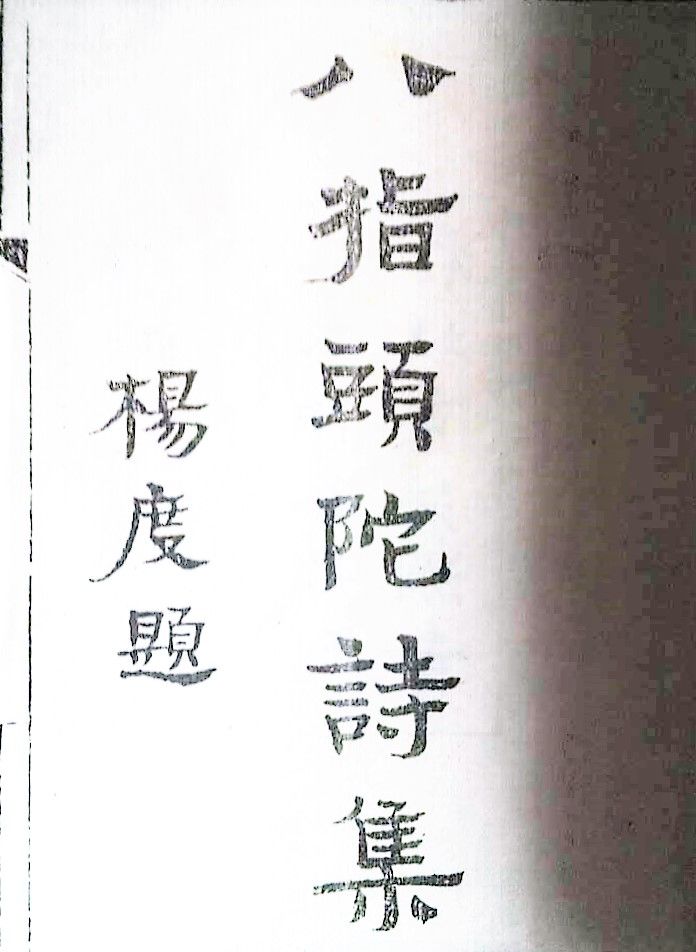 八指頭陀詩集
楊度題